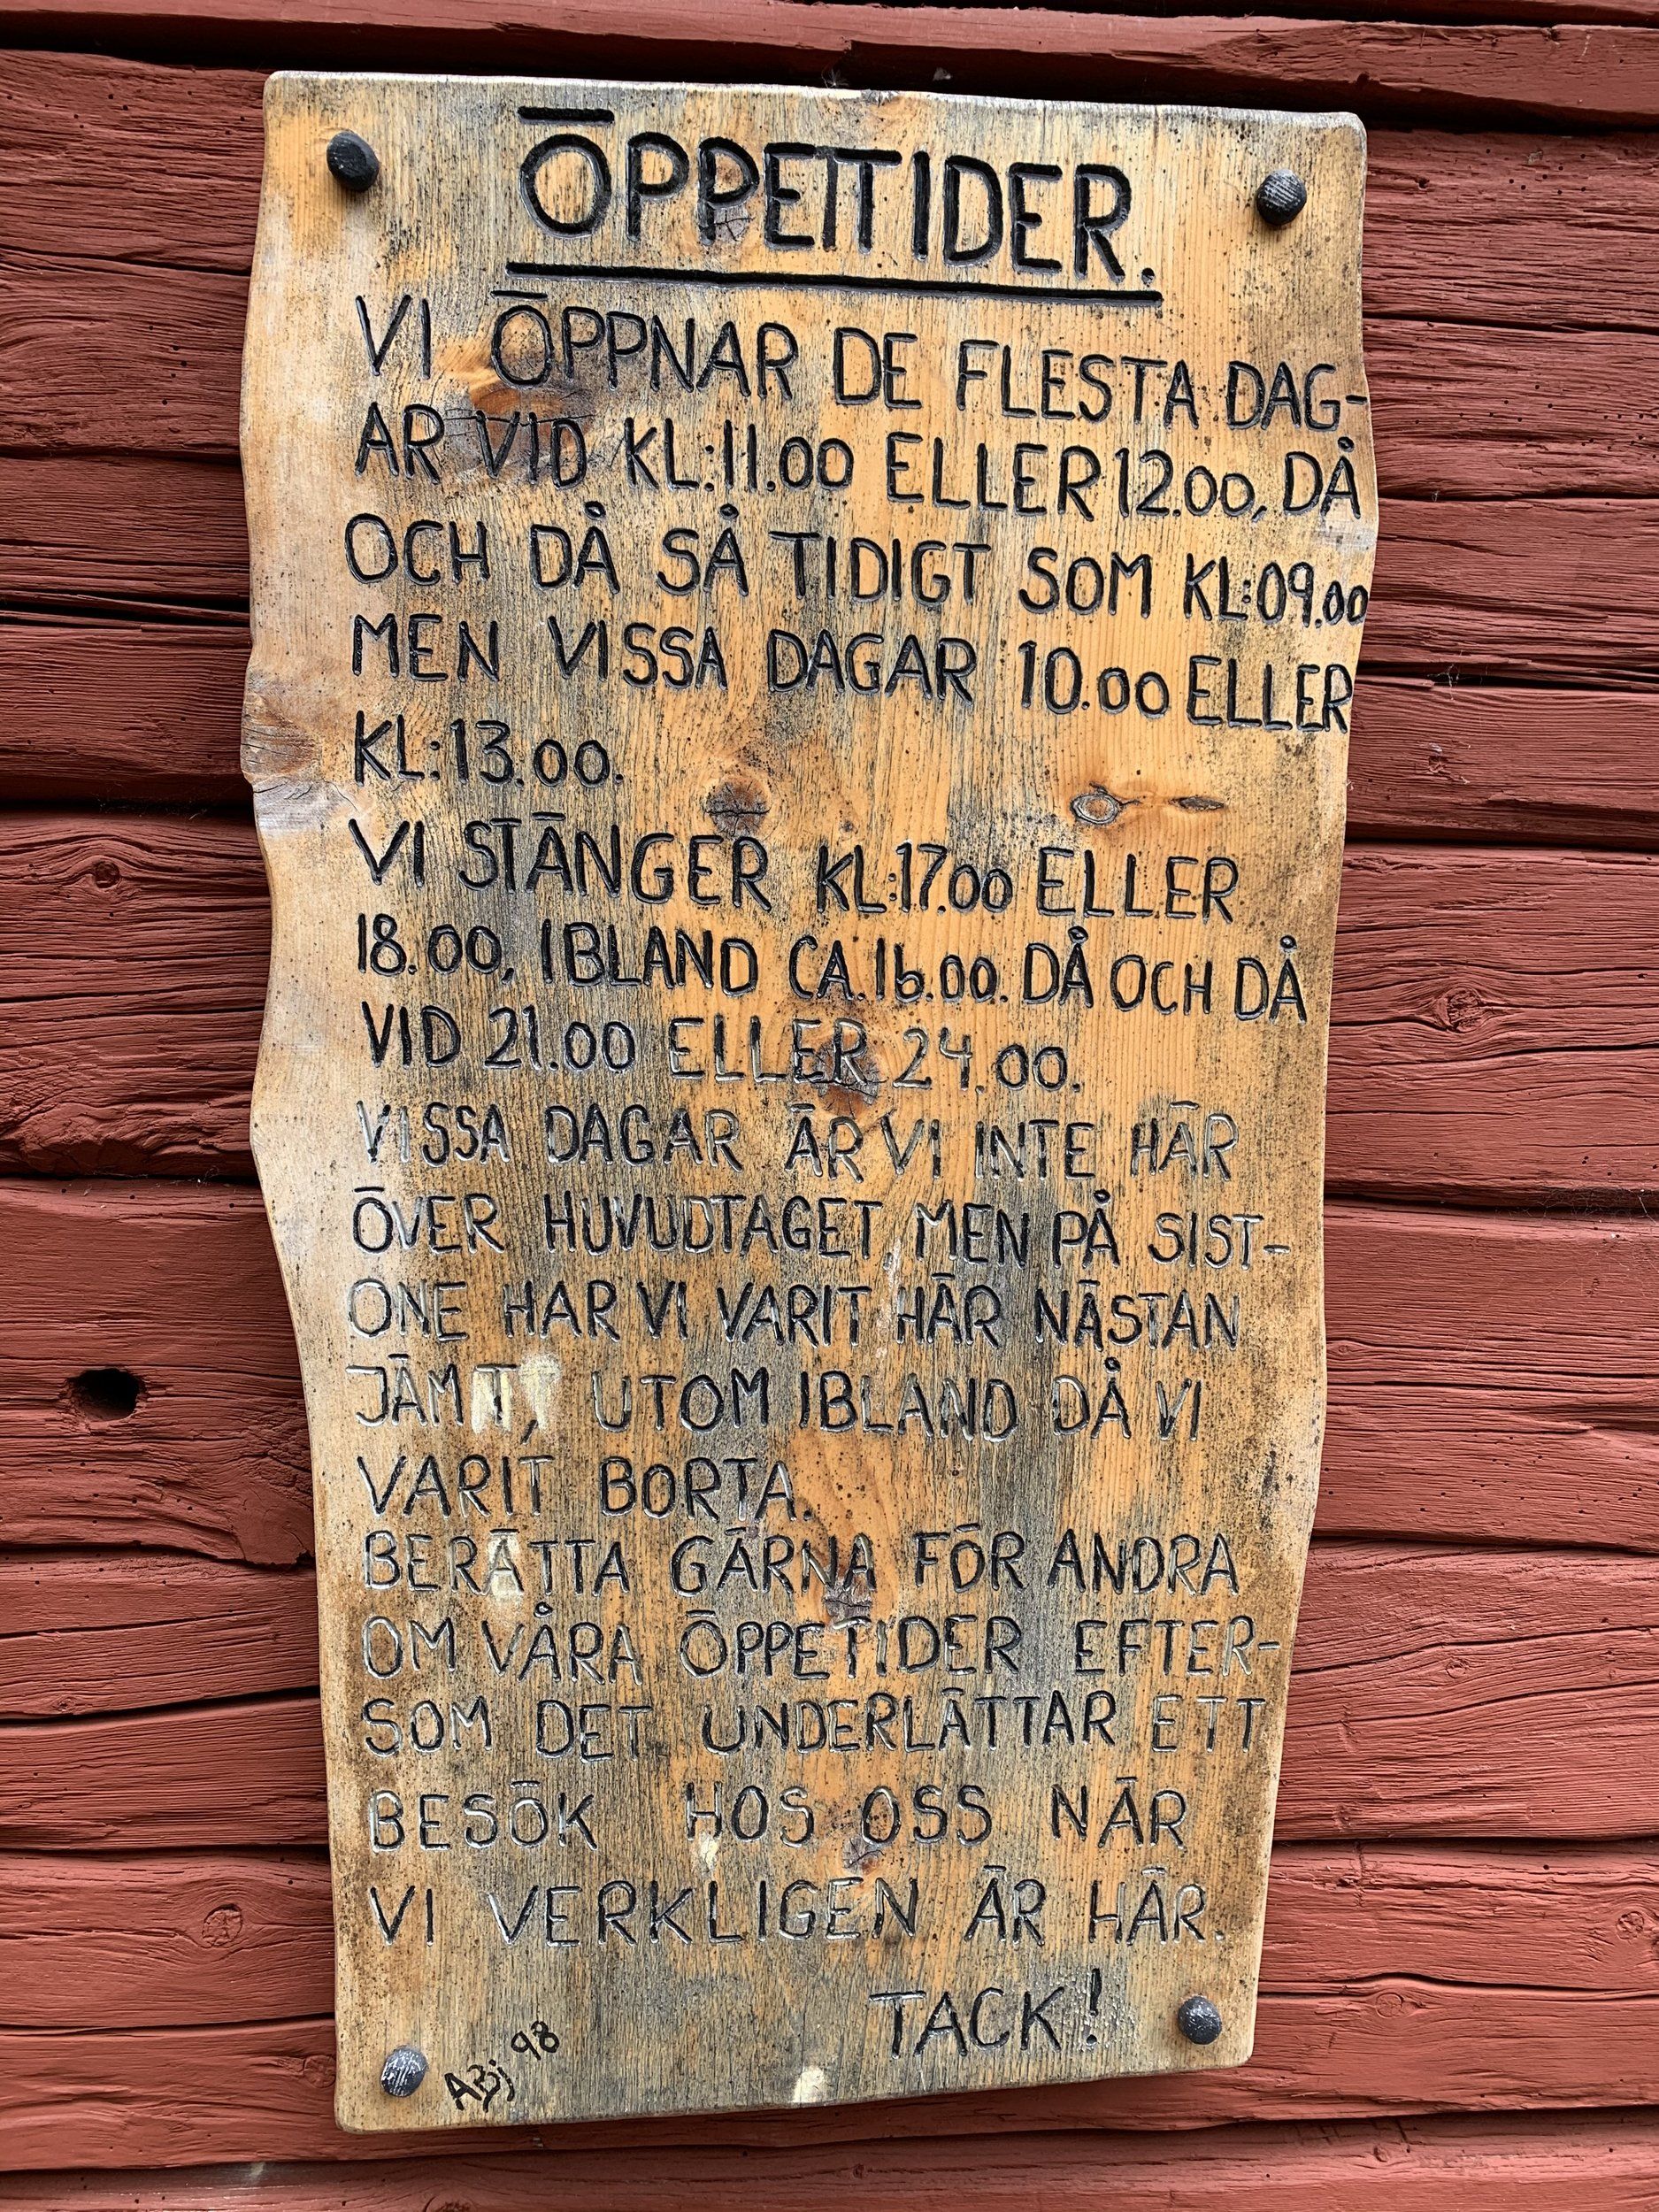 ÖPPETTIDER.
VI ÖPPNAR DE FLESTA DAG-
AR VID KL:11.00 ELLER 12.00, DÅ
OCH DÅ SÅ TIDIGT SOM KL:09.00
MEN VISSA DAGAR 10.00 ELLER
KL:13.00.
VI STÄNGER KL:17.00 ELLER
18.00, IBLAND CA.16.00. DÅ OCH DÅ
VID 21.00 ELLER 24.00.
VISSA DAGAR ÄR VI INTE HÄR
ÖVER HUVUDTAGET MEN PÅ SIST-
ONE HAR VI VARIT HÄR NÄSTAN
JÄMT, UTOM IBLAND DÅ VI
VARIT BORTA.
BERÄTTA GÄRNA FÖR ANDRA
OM VÅRA ÖPPETIDER EFTER-
SOM DET UNDERLÄTTAR ETT
BESÖK HOS OSS NÄR
VI VERKLIGEN ÄR HÄR.
TACK!
ABj 98